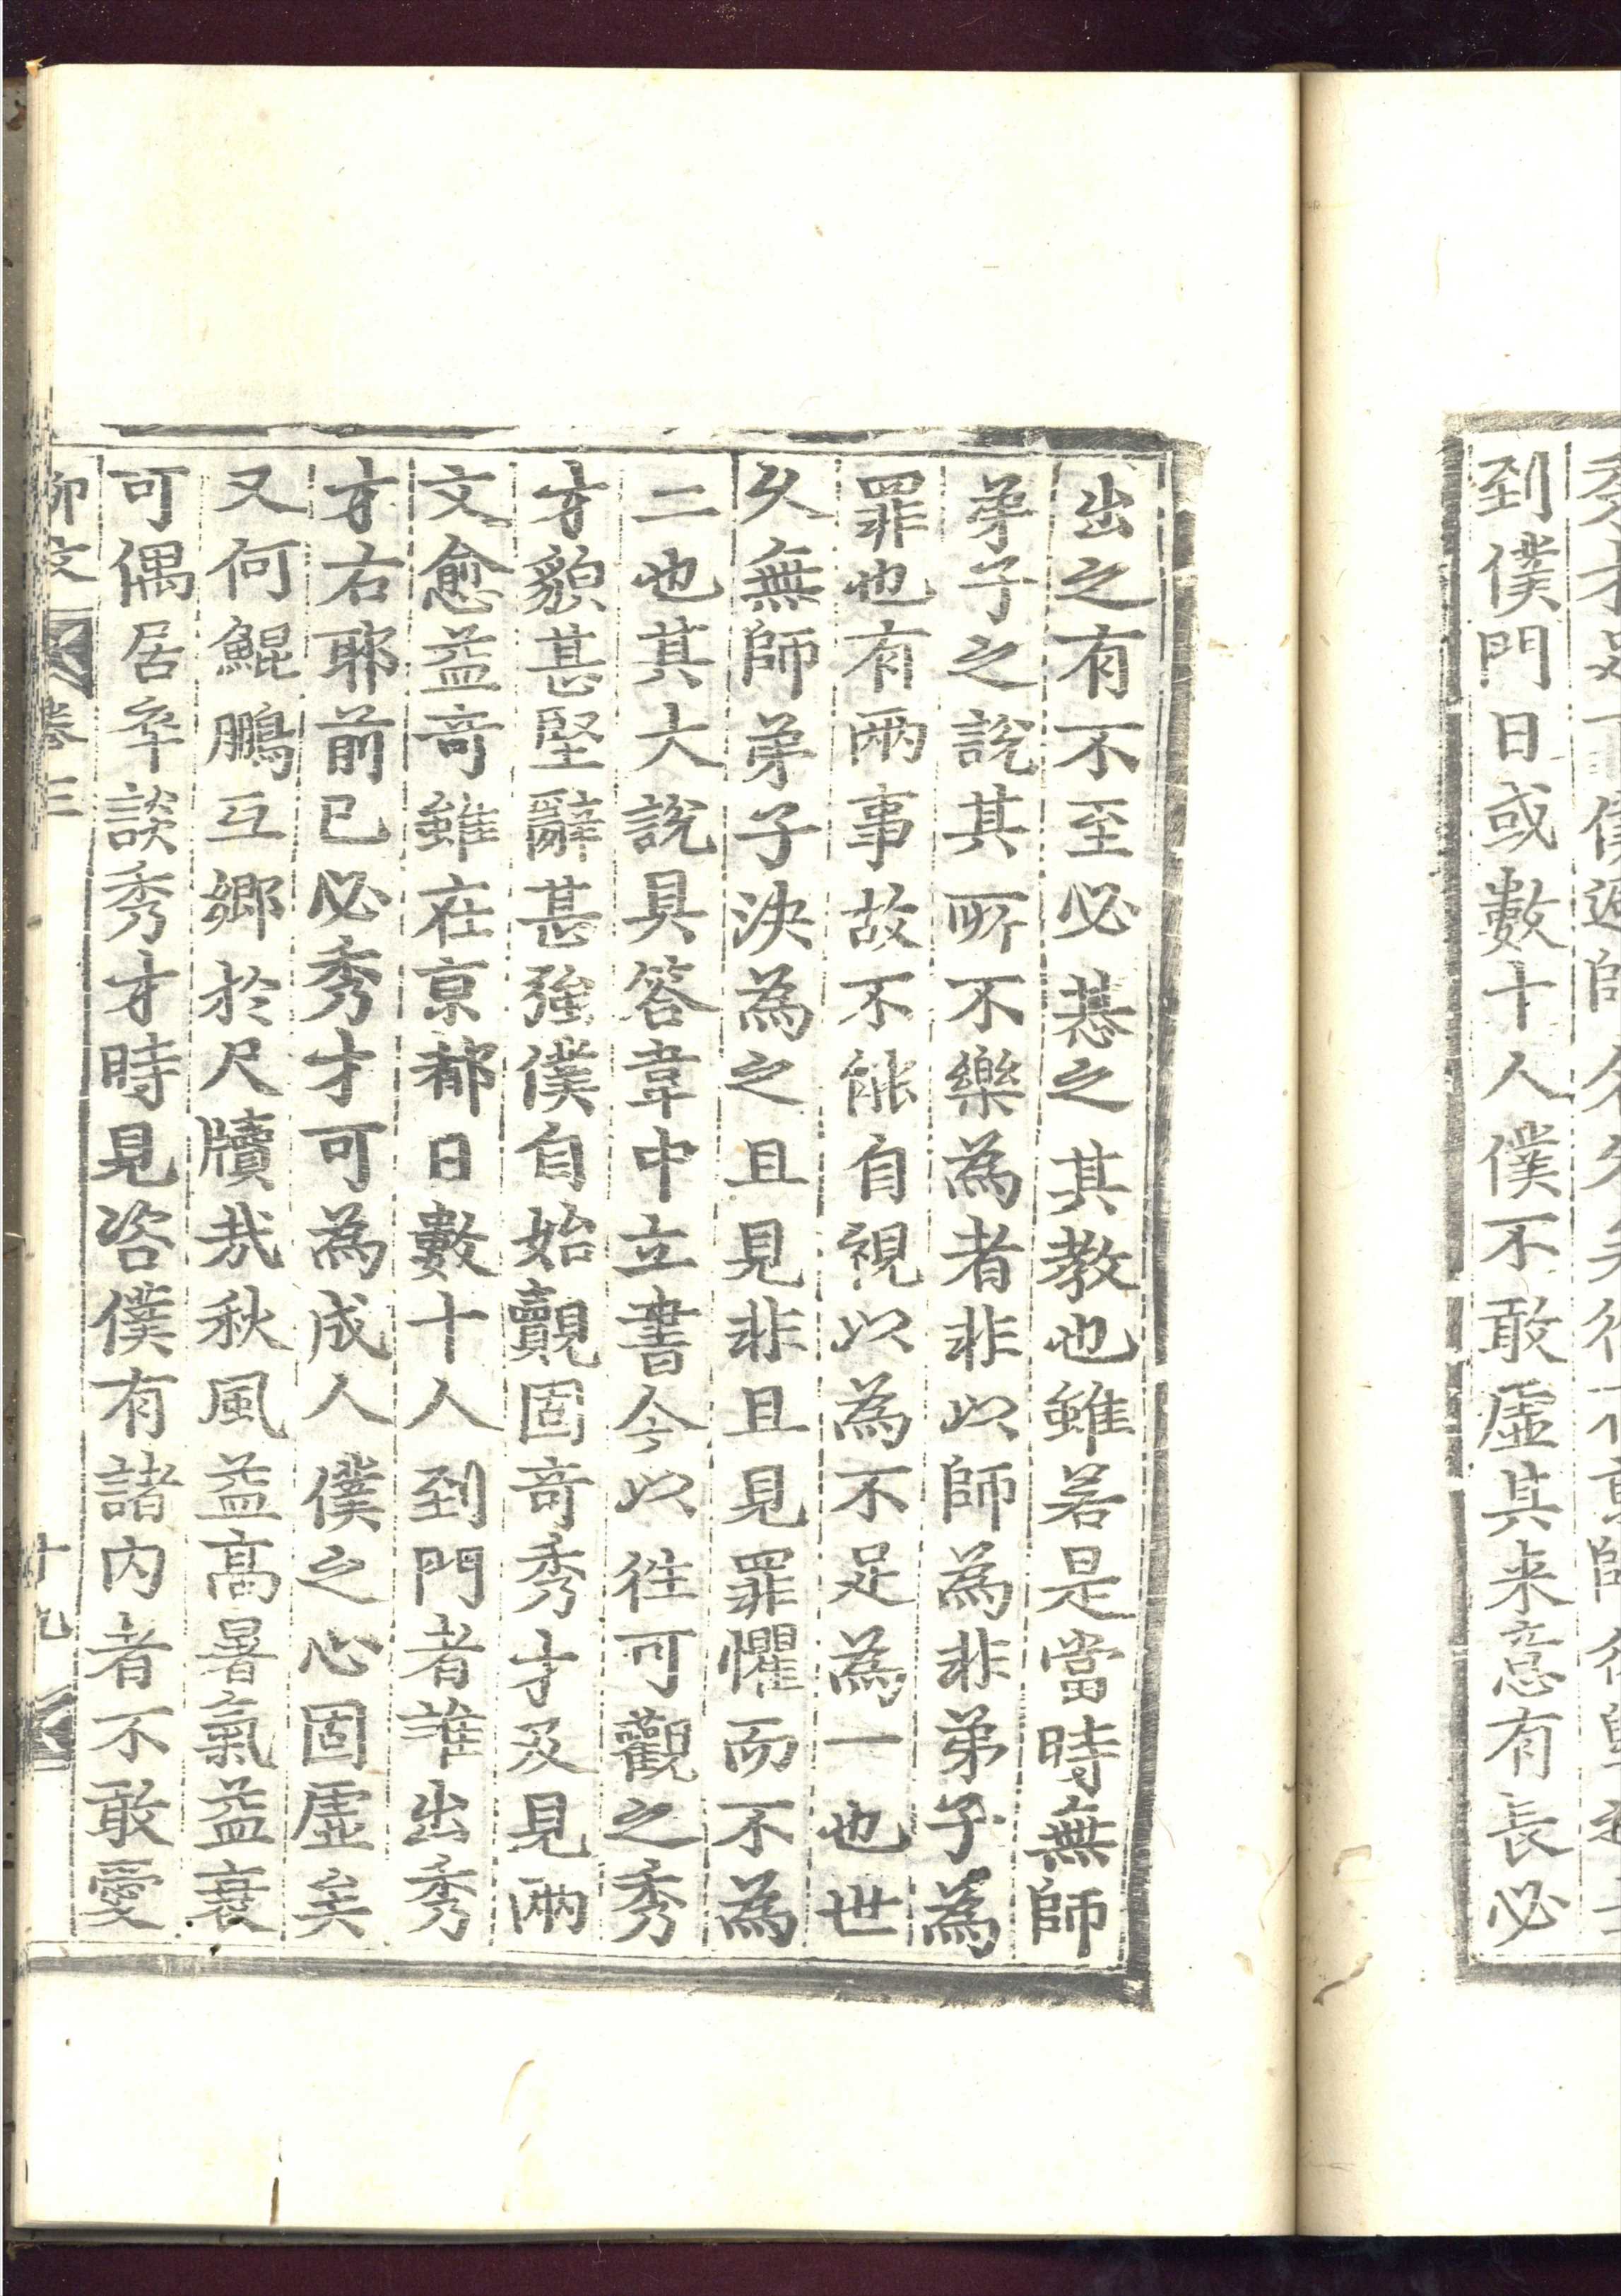 到僕門日或數十人僕不敢虛其来意有長必
出之有不至必惎之其教也雖若是當時無師
弟子之說其所不樂為者非以師為非弟子為
罪也有兩事故不能自視以為不足為一也世
久無師弟子決為之且見非且見罪懼而不為
二也其大說具答韋中立書今以往可觀之秀
才貌甚堅辭甚強僕自始覿固奇秀才及見兩
文愈益奇雖在京都日數十人到門者誰出秀
才右耶前已必秀才可為成人僕之心固虛矣
又何鯤鵬互鄉於尺牘哉秋風益高暑氣益衰
可偶居卒談秀才時見咨僕有諸內者不敢愛
柳文 卷三 十九